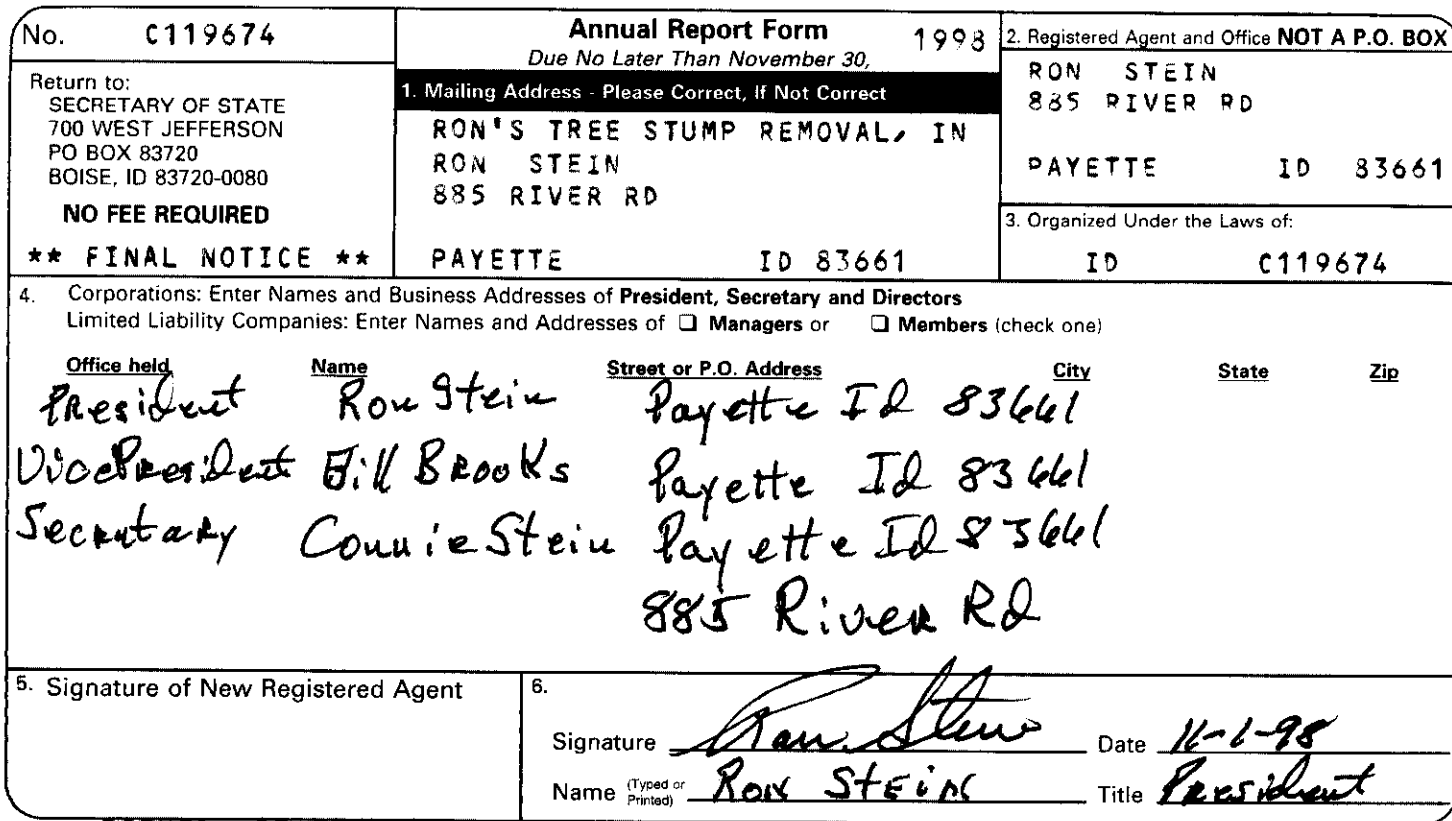 No. C119674
Return to:
SECRETARY OF STATE
700 WEST JEFFERSON
PO BOX 83720
BOISE, ID 83720-0080
NO FEE REQUIRED
** FINAL NOTICE **
Annual Report Form 1998
Due No Later Than November 30,
1. Mailing Address - Please Correct, If Not Correct
RON'S TREE STUMP REMOVAL, IN
RON STEIN
885 RIVER RD
PAYETTE ID 83661
2. Registered Agent and Office NOT A P.O. BOX
RON STEIN
885 RIVER RD
PAYETTE ID 83661
3. Organized Under the Laws of:
ID C119674
4. Corporations: Enter Names and Business Addresses of President, Secretary and Directors
Limited Liability Companies: Enter Names and Addresses of ❑ Managers or ❑ Members (check one)
Office held Name Street or P.O. Address City State Zip
President Ron Stein Payette Id 83661
Vice President Bill Brooks Payette Id 83661
Secretary Connie Stein Payette Id 83661
885 River Rd
5. Signature of New Registered Agent
6.
Signature Ron Stein Date 11-1-98
Name (Typed or Printed) Ron Stein Title President